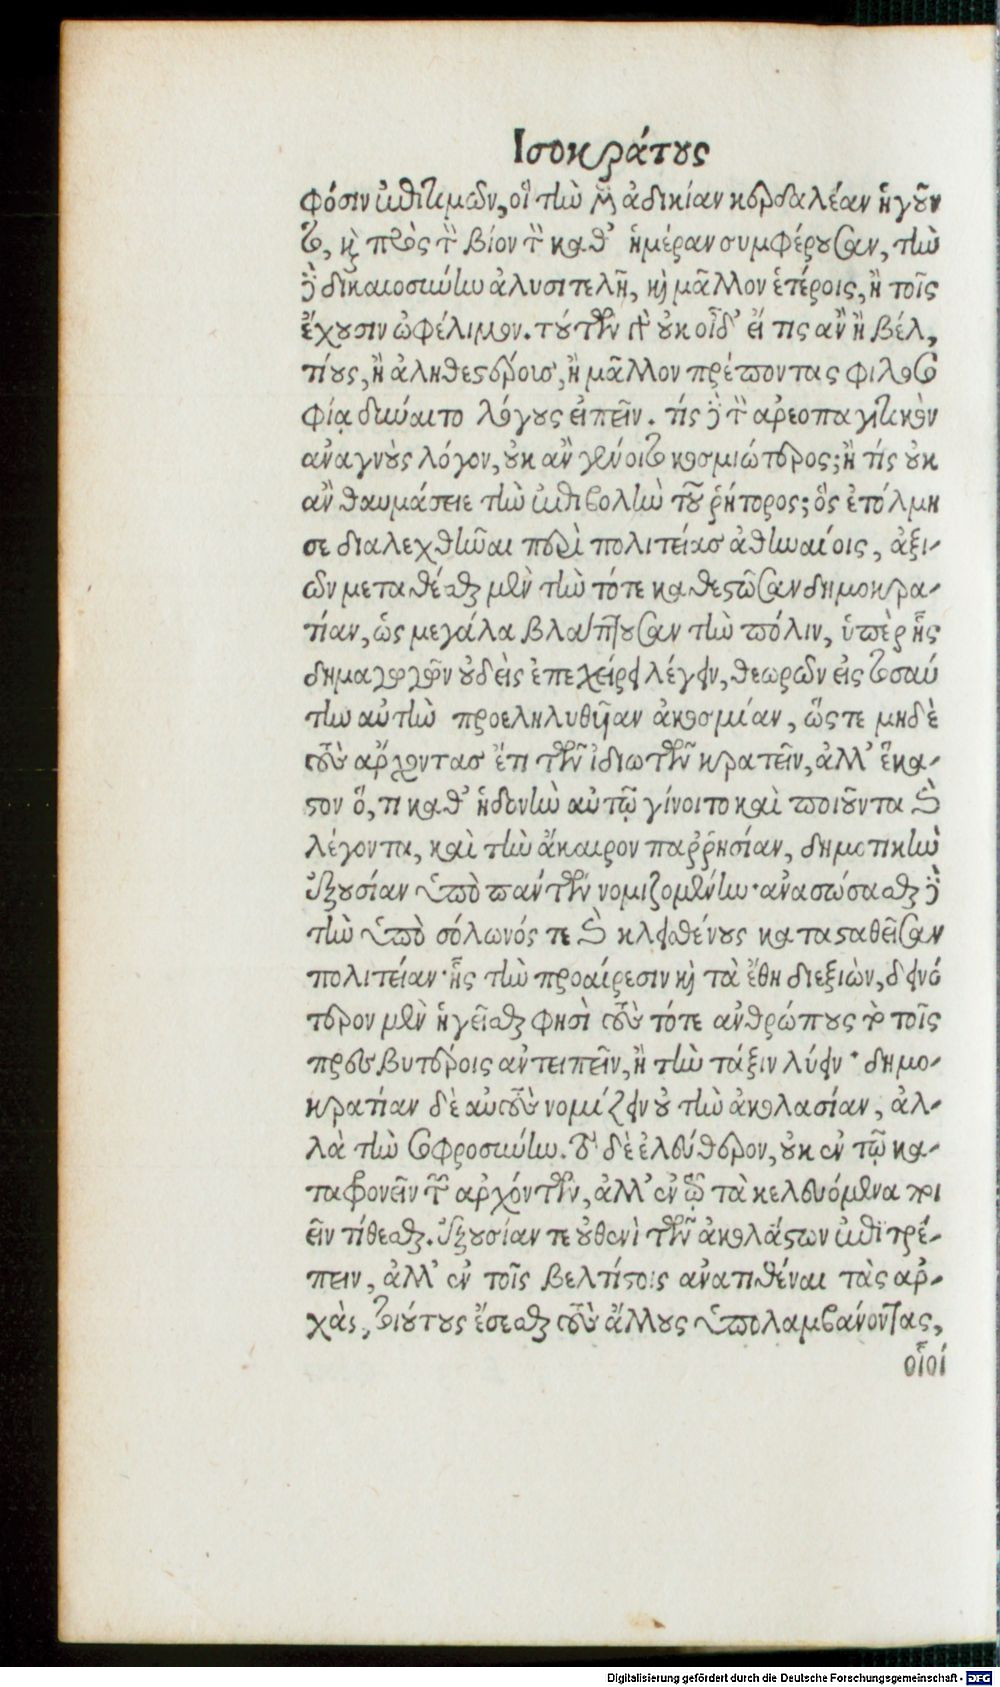 Ισοκράτους
φόσιν ἐπιτιμῶν, οἳ τὴν μὲν ἀδικίαν κερδαλέαν ἡγοῦν
ται, καὶ πρὸς τὸν βίον τὸν καθ' ἡμέραν συμφέρουσαν, τὴν
δὲ δικαιοσύνην ἀλυσιτελῆ, καὶ μᾶλλον ἑτέροις, ἢ τοῖς
ἔχουσιν ὠφέλιμον. τούτων γὰρ οὐκ οἶδ' εἴ τις ἂν ἢ βελ,
τίους, ἢ ἀληθεστέρους, ἢ μᾶλλον πρέποντας φιλοσο
φίᾳ δύναιτο λόγους εἰπεῖν. τίς δὲ τὸν ἀρεοπαγιτικὸν
ἀναγνοὺς λόγον, οὐκ ἂν γένοιτο κοσμιώτερος; ἢ τίς οὐκ
ἂν θαυμάσειε τὴν ἐπιβολὴν τοῦ ῥήτορος; ὃς ἐτόλμη
σε διαλεχθῆναι περὶ πολιτείας ἀθηναίοις, ἀξι-
ῶν μεταθέσθαι μὲν τὴν τότε καθεστῶσαν δημοκρα-
τίαν, ὡς μεγάλα βλάπτουσαν τὴν πόλιν, ὑπὲρ ἧς
δημαγωγῶν οὐδεὶς ἐπεχείρει λέγειν, θεωρῶν εἰς τοσαύ
την αὐτὴν προεληλυθυῖαν ἀκοσμίαν, ὥστε μηδὲ
τοὺς ἄρχοντας ἔτι τῶν ἰδιωτῶν κρατεῖν, ἀλλ' ἕκα-
στον ὅ,τι καθ' ἡδονὴν αὐτῷ γίνοιτο καὶ ποιοῦντα καὶ
λέγοντα, καὶ τὴν ἄκαιρον παῤῥησίαν, δημοτικὴν
ἐξουσίαν ὑπὸ πάντων νομιζομένην· ἀνασώσασθαι δὲ
τὴν ὑπὸ σόλωνός τε καὶ κλεισθένους κατασταθεῖσαν
πολιτείαν· ἧς τὴν προαίρεσιν καὶ τὰ ἔθη διεξιὼν, δεινό
τερον μὲν ἡγεῖσθαι φησὶ τοὺς τότε ἀνθρώπους τὸ τοῖς
πρεσβυτέροις ἀντειπεῖν, ἢ τὴν τάξιν λύειν· δημο-
κρατίαν δὲ αὐτοὺς νομίζειν οὐ τὴν ἀκολασίαν, ἀλ-
λὰ τὴν σωφροσύνην. τὸ δὲ ἐλεύθερον, οὐκ ἐν τῷ κα-
ταφρονεῖν τῶν ἀρχόντων, ἀλλ' ἐν τῷ τὰ κελευόμενα ποι
εῖν τίθεσθαι. ἐξουσίαν τε οὐθενὶ τῶν ἀκολάστων ἐπιτρέ-
πειν, ἀλλ' ἐν τοῖς βελτίστοις ἀνατιθέναι τὰς ἀρ-
χὰς, τοιούτους ἔσεσθαι τοὺς ἄλλους ὑπολαμβάνοντας,
οἷοί
Digitalisierung gefördert durch die Deutsche Forschungsgemeinschaft - DFG